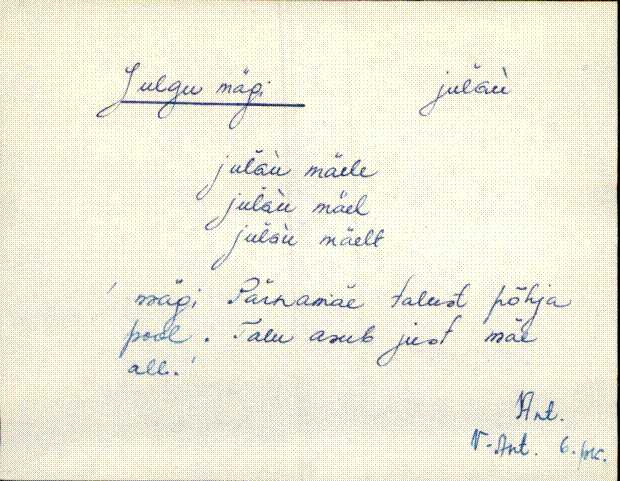 Julgu mägi julɢ̆ù
julɢ̆ù mäele
julɢ̆ù mäel
julɢ̆ù mäelt
' mägi Pärnamäe talust põhja
pool. Talu asub just mäe
all.'
Ant.
V-Ant. 6.